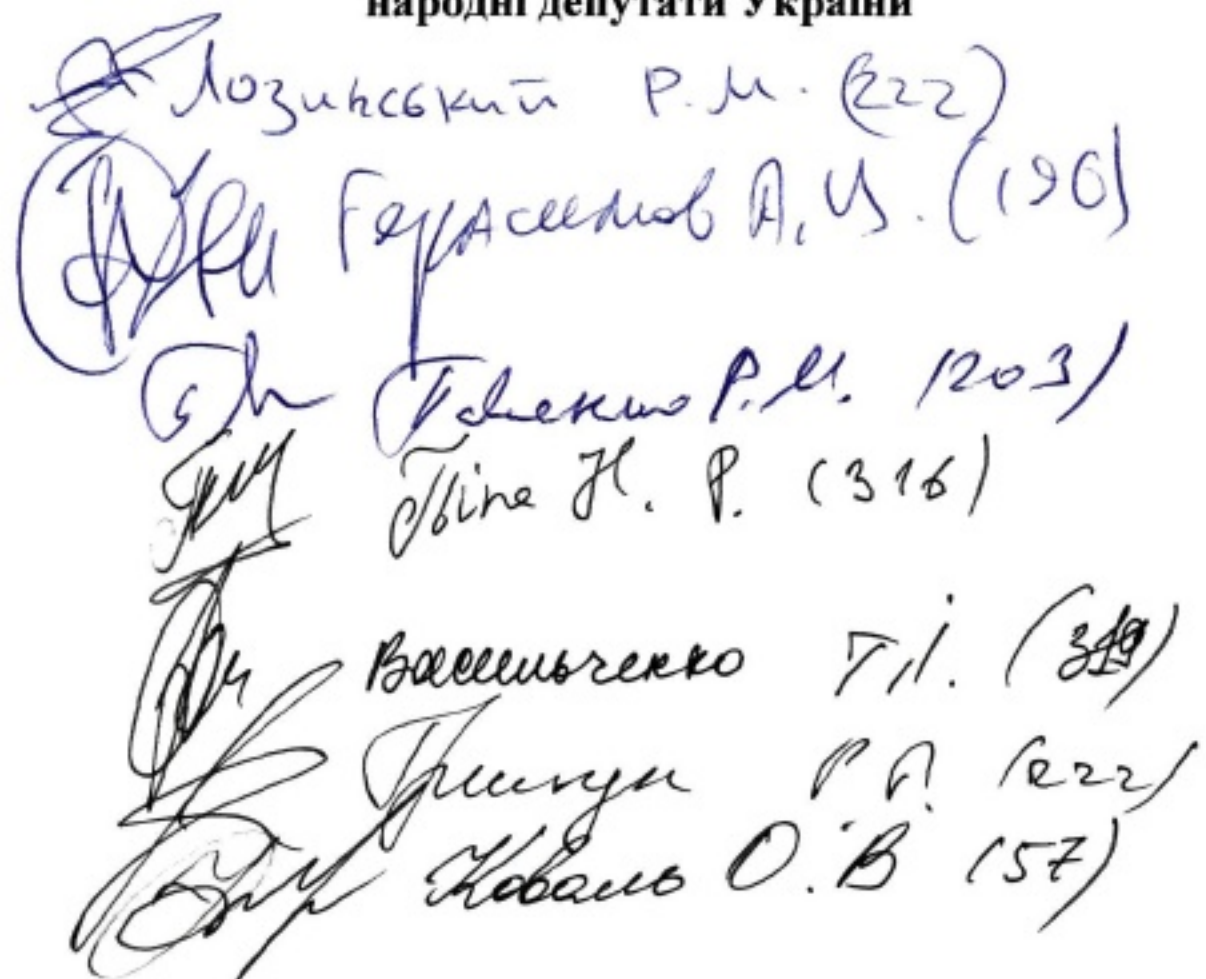 народні депутати України
Лозинський Р.М. (222)
Герасимов А.В. (196)
Р.М. (203)
Піпа Н. Р. (316)
Васильченко Г.І. (319)
Грищук Р.П. (222)
Коваль О.В (57)